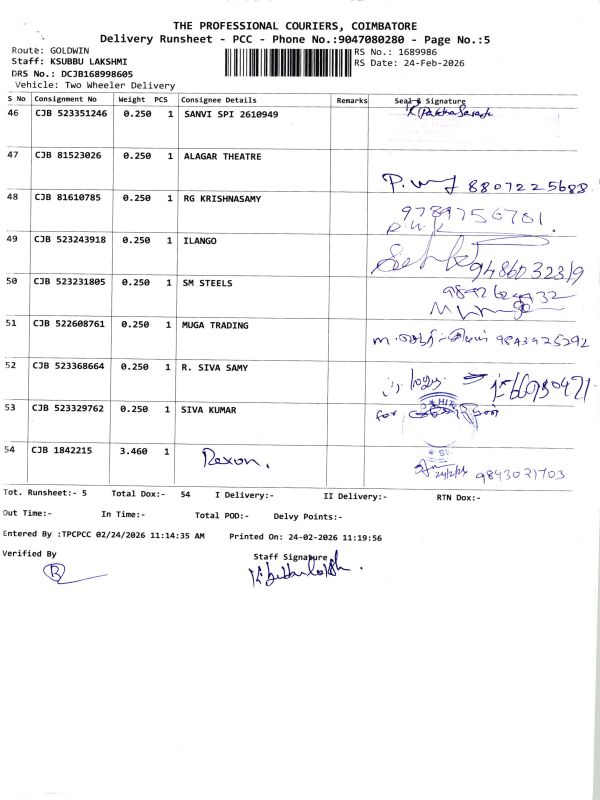 THE PROFESSIONAL COURIERS, COIMBATORE
Delivery Runsheet - PCC - Phone No.:9047080280 - Page No.:5
Route: GOLDWIN
Staff: KSUBBU LAKSHMI
DRS No.: DCJB168998605
Vehicle: Two Wheeler Delivery
RS No.: 1689986
RS Date: 24-Feb-2026
S No Consignment No Weight PCS Consignee Details Remarks Seal & Signature
46 CJB 523351246 0.250 1 SANVI SPI 2610949
47 CJB 81523026 0.250 1 ALAGAR THEATRE 8807225688
48 CJB 81610785 0.250 1 RG KRISHNASAMY 9789756781
49 CJB 523243918 0.250 1 ILANGO
50 CJB 523231805 0.250 1 SM STEELS
51 CJB 522608761 0.250 1 MUGA TRADING 9843425292
52 CJB 523368664 0.250 1 R. SIVA SAMY
53 CJB 523329762 0.250 1 SIVA KUMAR for
54 CJB 1842215 3.460 1 Rexon. 24/2/26 9843021703
Tot. Runsheet:- 5 Total Dox:- 54 I Delivery:- II Delivery:- RTN Dox:-
Out Time:- In Time:- Total POD:- Delvy Points:-
Entered By :TPCPCC 02/24/2026 11:14:35 AM Printed On: 24-02-2026 11:19:56
Verified By Staff Signature